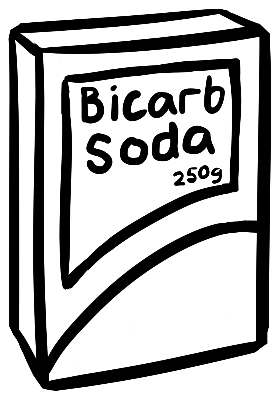 Bicarb
Soda
250g